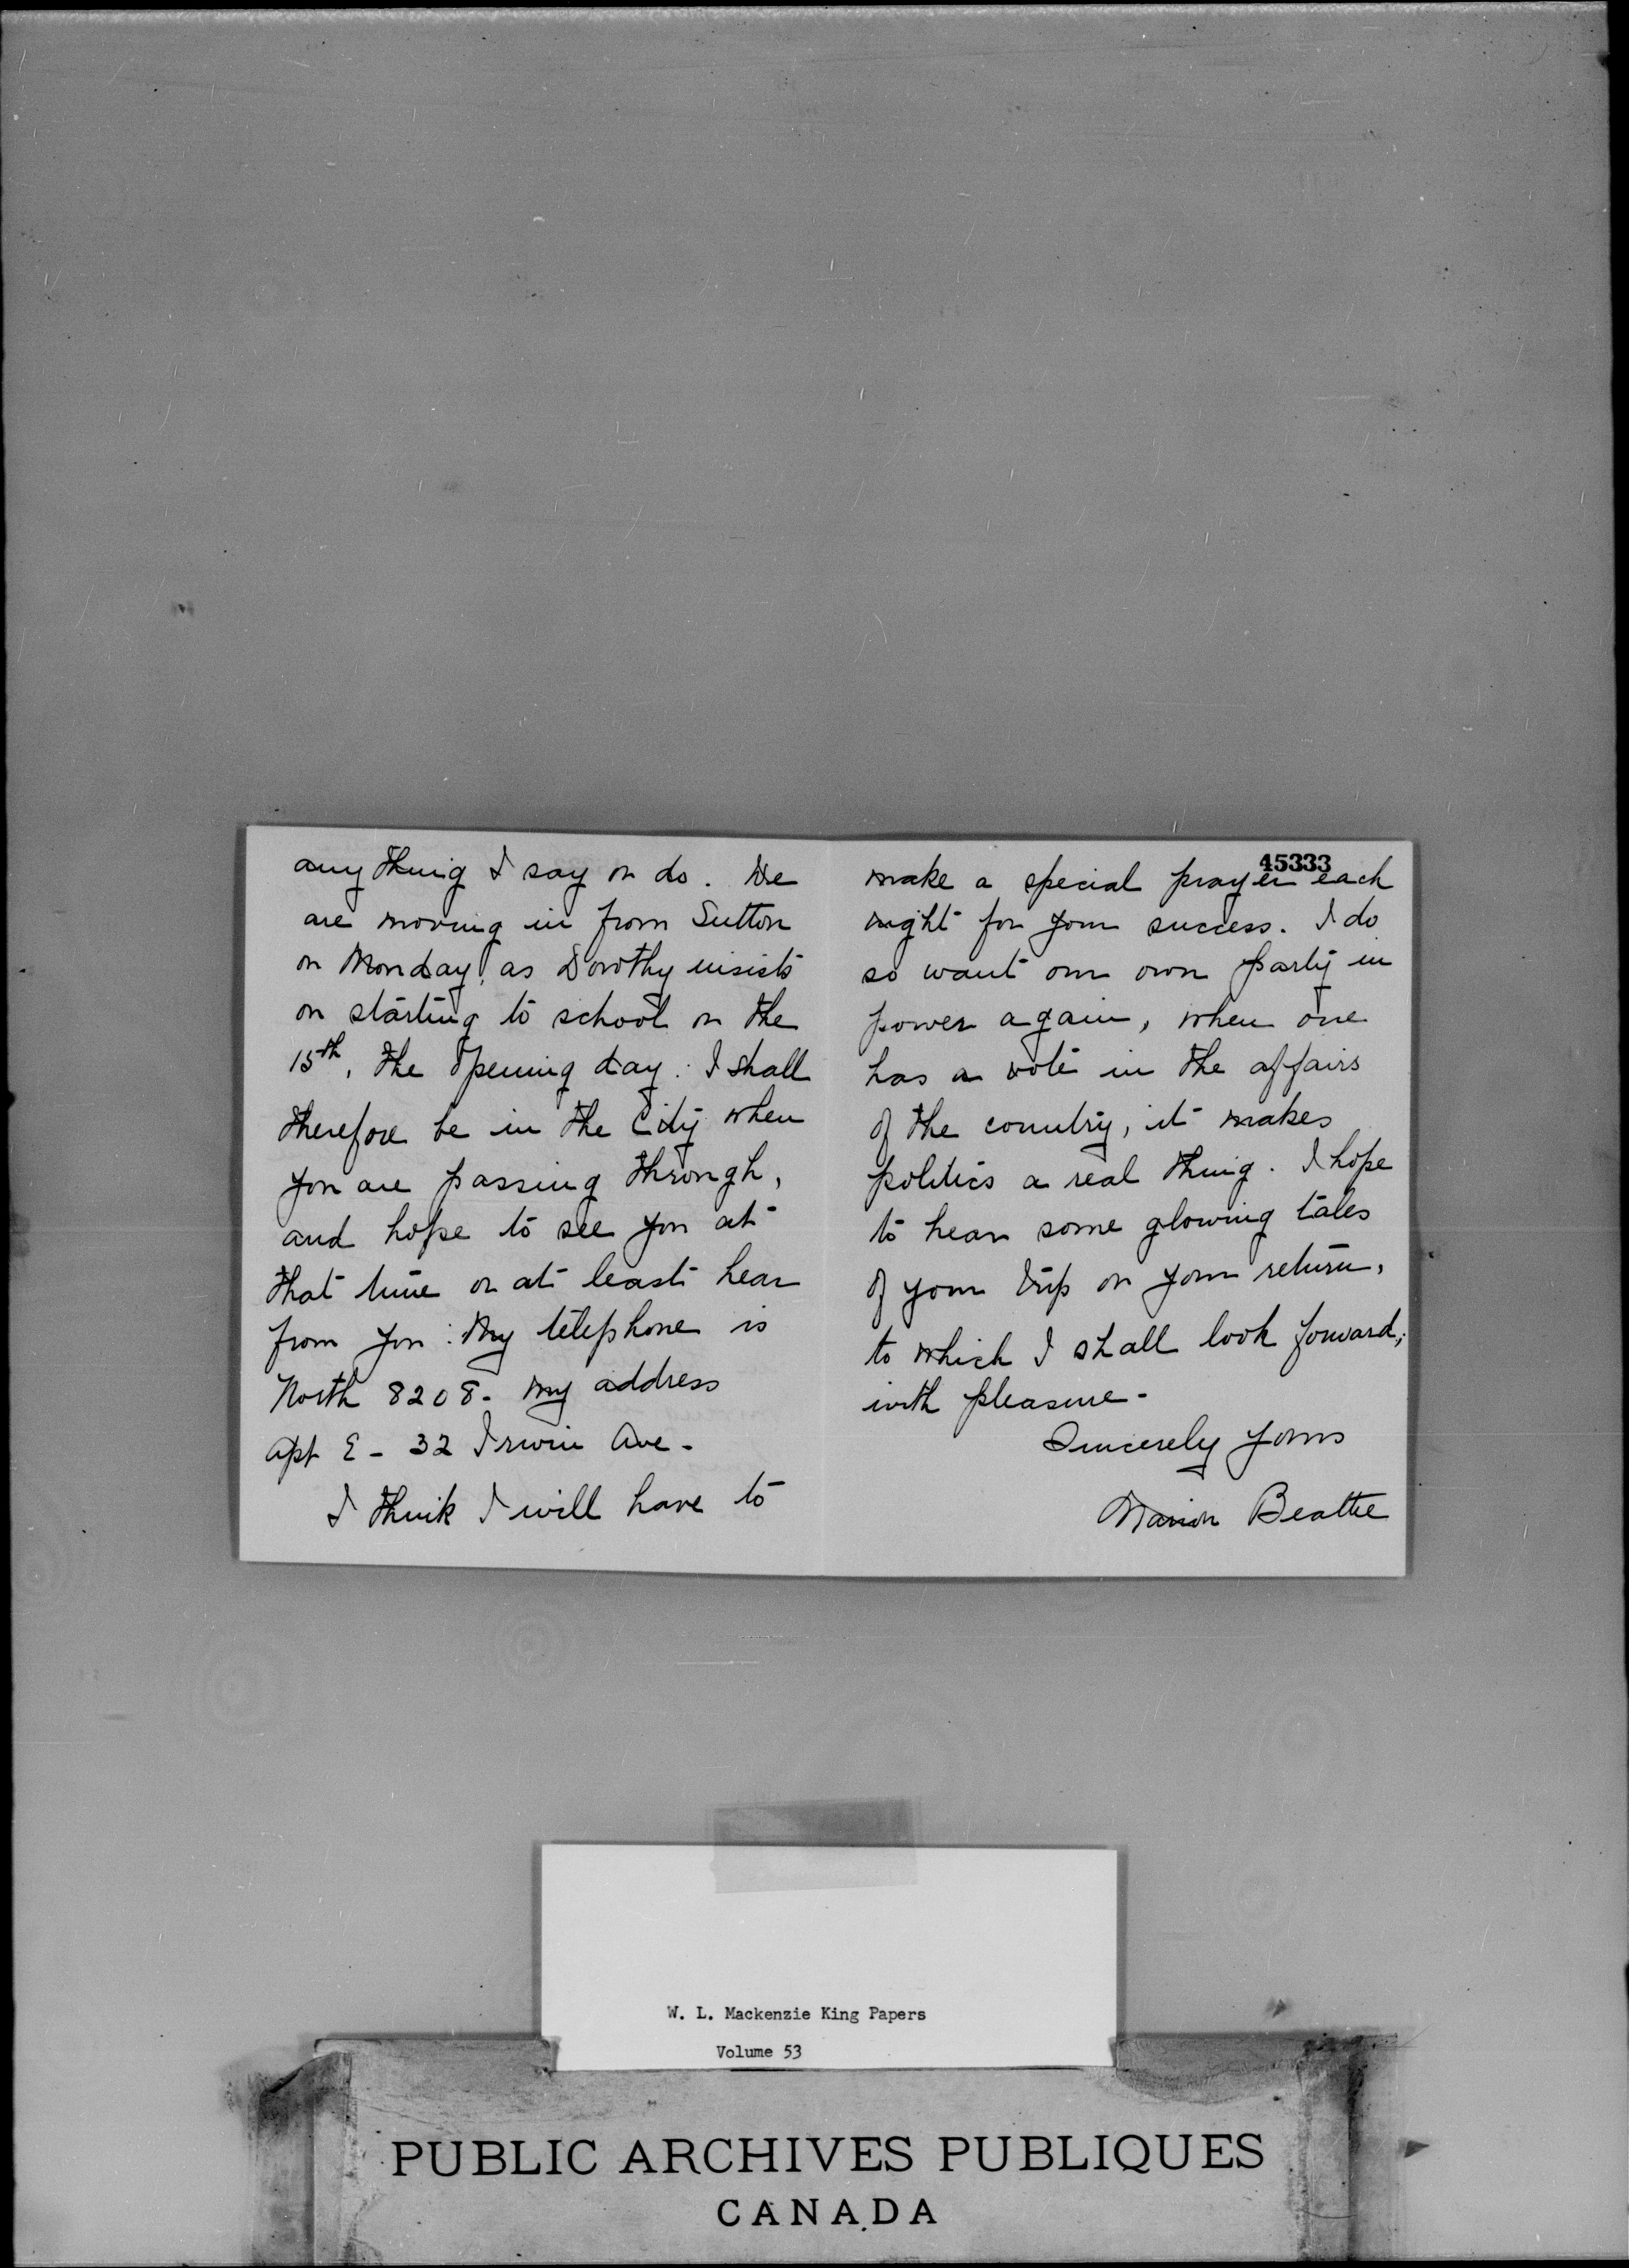 anything I say or do. We
are moving in from Sutton
on Monday, as Dorothy insists
on starting to school on the
15th, the opening day. I shall
therefore be in the City when
you are passing through,
and hope to see you at
that time or at least hear
from you. My telephone is
North 8208. My address
Apt E - 32 Irwin Ave.
I think I will have to
45333
make a special prayer each
night for your success. I do
so want our own party in
power again, when one
has a vote in the affairs
of the country, it makes
politics a real thing. I hope
to hear some glowing tales
of your trip on your return,
to which I shall look forward,
with pleasure -
Sincerely yours
Marion Beattie
W. L. Mackenzie King Papers
Volume 53
PUBLIC ARCHIVES PUBLIQUES
CANADA